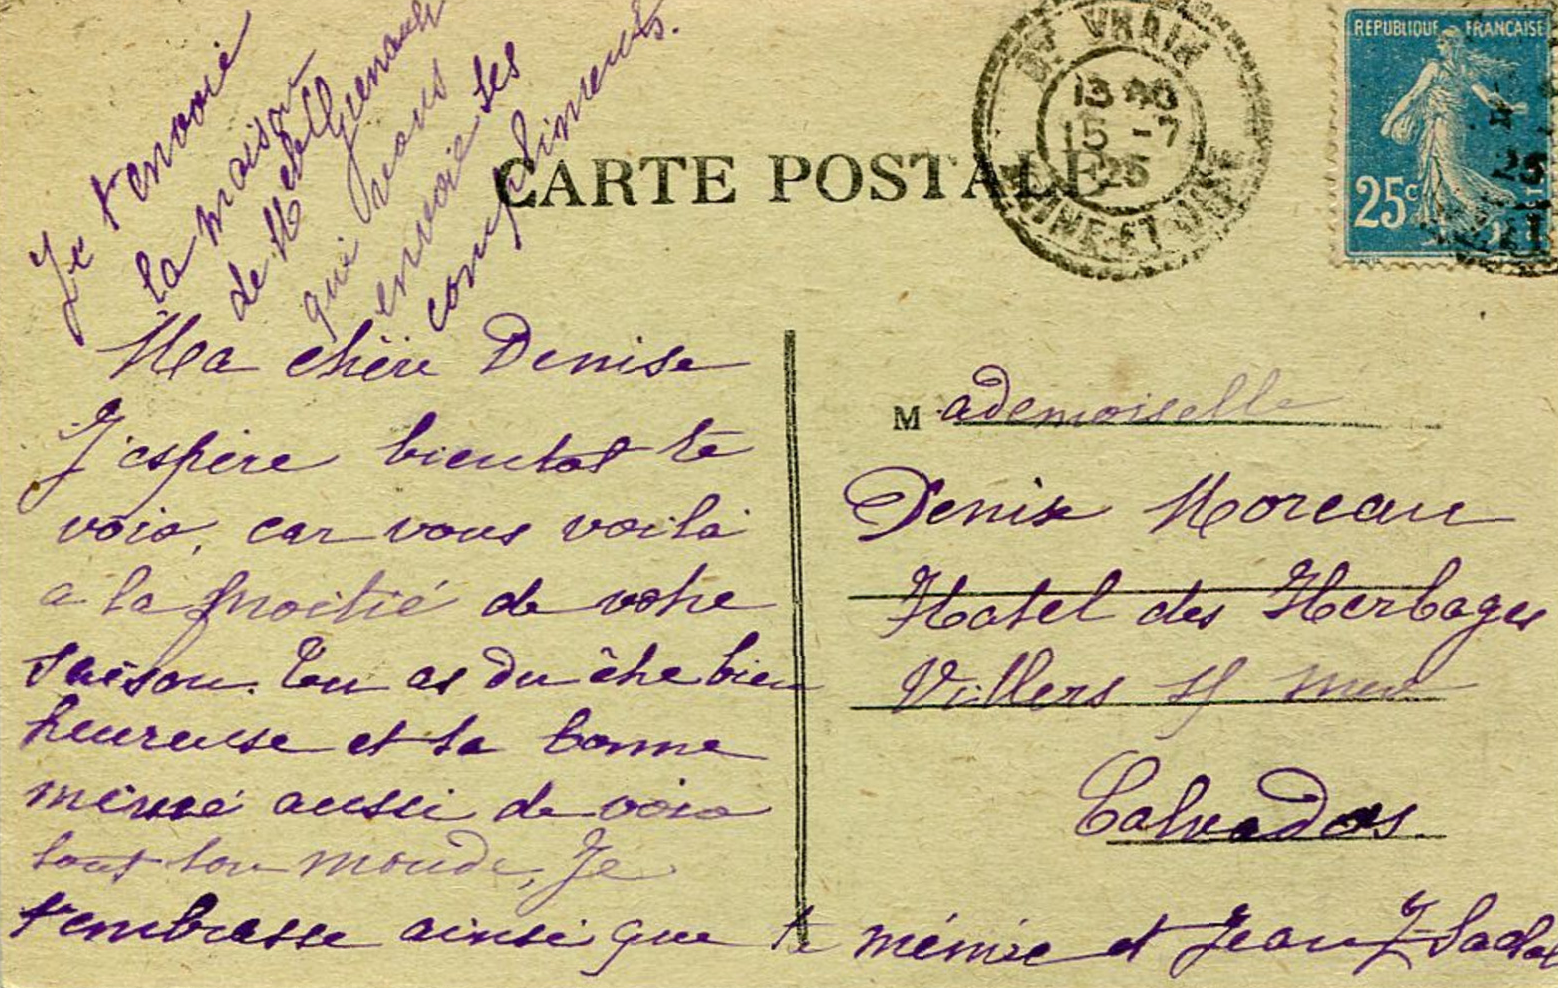 Je t'envoie
la maison
de Melle
qui vous
envoie ses
compliments.
CARTE POSTALE
13 40
15 -7
25
REPUBLIQUE FRANÇAISE
25c
Ma chère Denise
J'espère bientot te
voir, car vous voilà
a la moitié de votre
saison. Tu as du être bien
heureuse et ta bonne
mémé aussi de voir
tout ton monde, Je
t'embrasse ainsi que ta mémée et Jean
Mademoiselle
Denise Moreau
Hotel des Herbages
Villers s/ mer
Calvados.